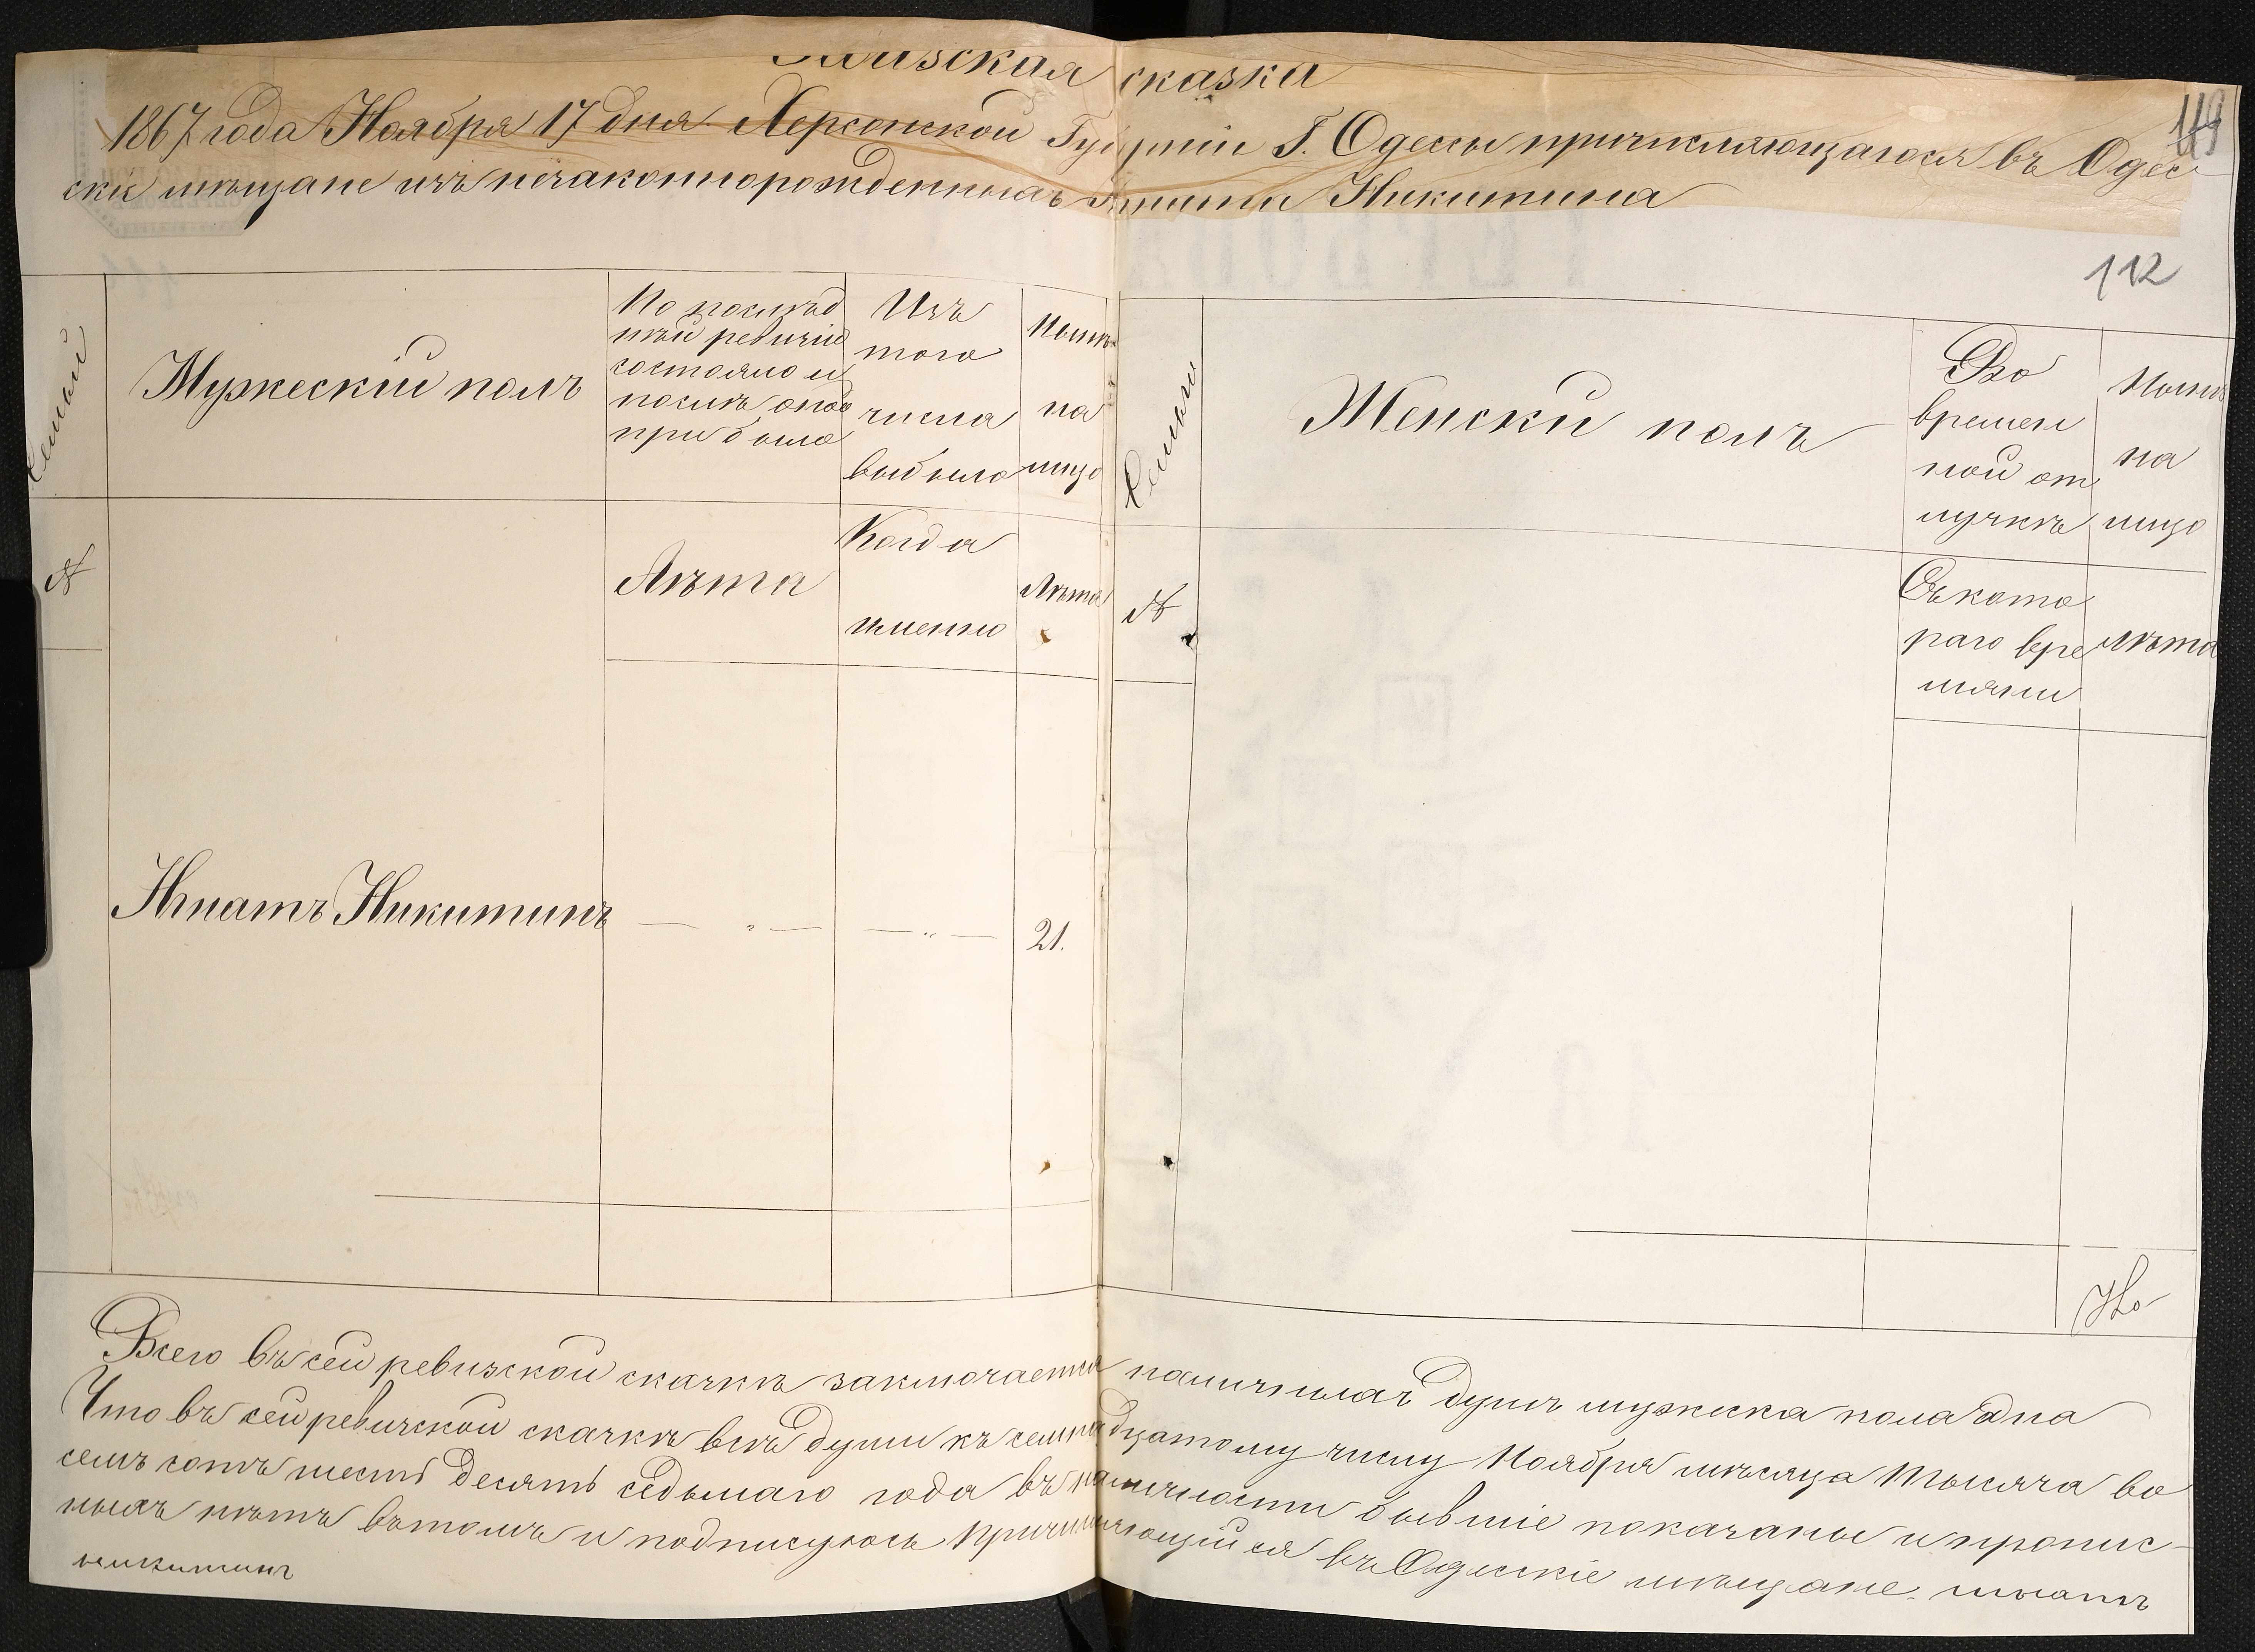 Ревизская сказка
1867 года Ноября 17 дня Херсонской Губернiи Г. Одессы причисляющагося въ Одес
скiе мѣщане изъ незаконнорожденныхъ Игната Никитина
119
112
Семьи
Мужескiй полъ
По послѣд
ней ревизiи
состояло и
послѣ оной
прибыло
Изъ
того
числа
выбыло
Нынѣ
на
лицо
№
Лѣта
Когда
именно
Лѣта
Игнатъ Никитинъ
— " —
— " —
21.
Семьи
Женскiй полъ
Во
времен
ной от
лучкѣ
Нынѣ
на
лицо
№
Съ кото
раго вре
мяни
лѣта
Но
Всего въ сей ревизской сказкѣ заключается наличныхъ душъ мужеска пола одна
Что въ сей ревизской сказкѣ всѣ души къ семнадцатому числу Ноября мѣсяца тысяча во
семъ сотъ шесть десятъ седьмаго года въ наличности бывшiе показаны и пропис-
ныхъ нѣтъ въ томъ и подписуюсь причисляющiйся въ Одесскiе мѣщане. игнатъ
никитинъ